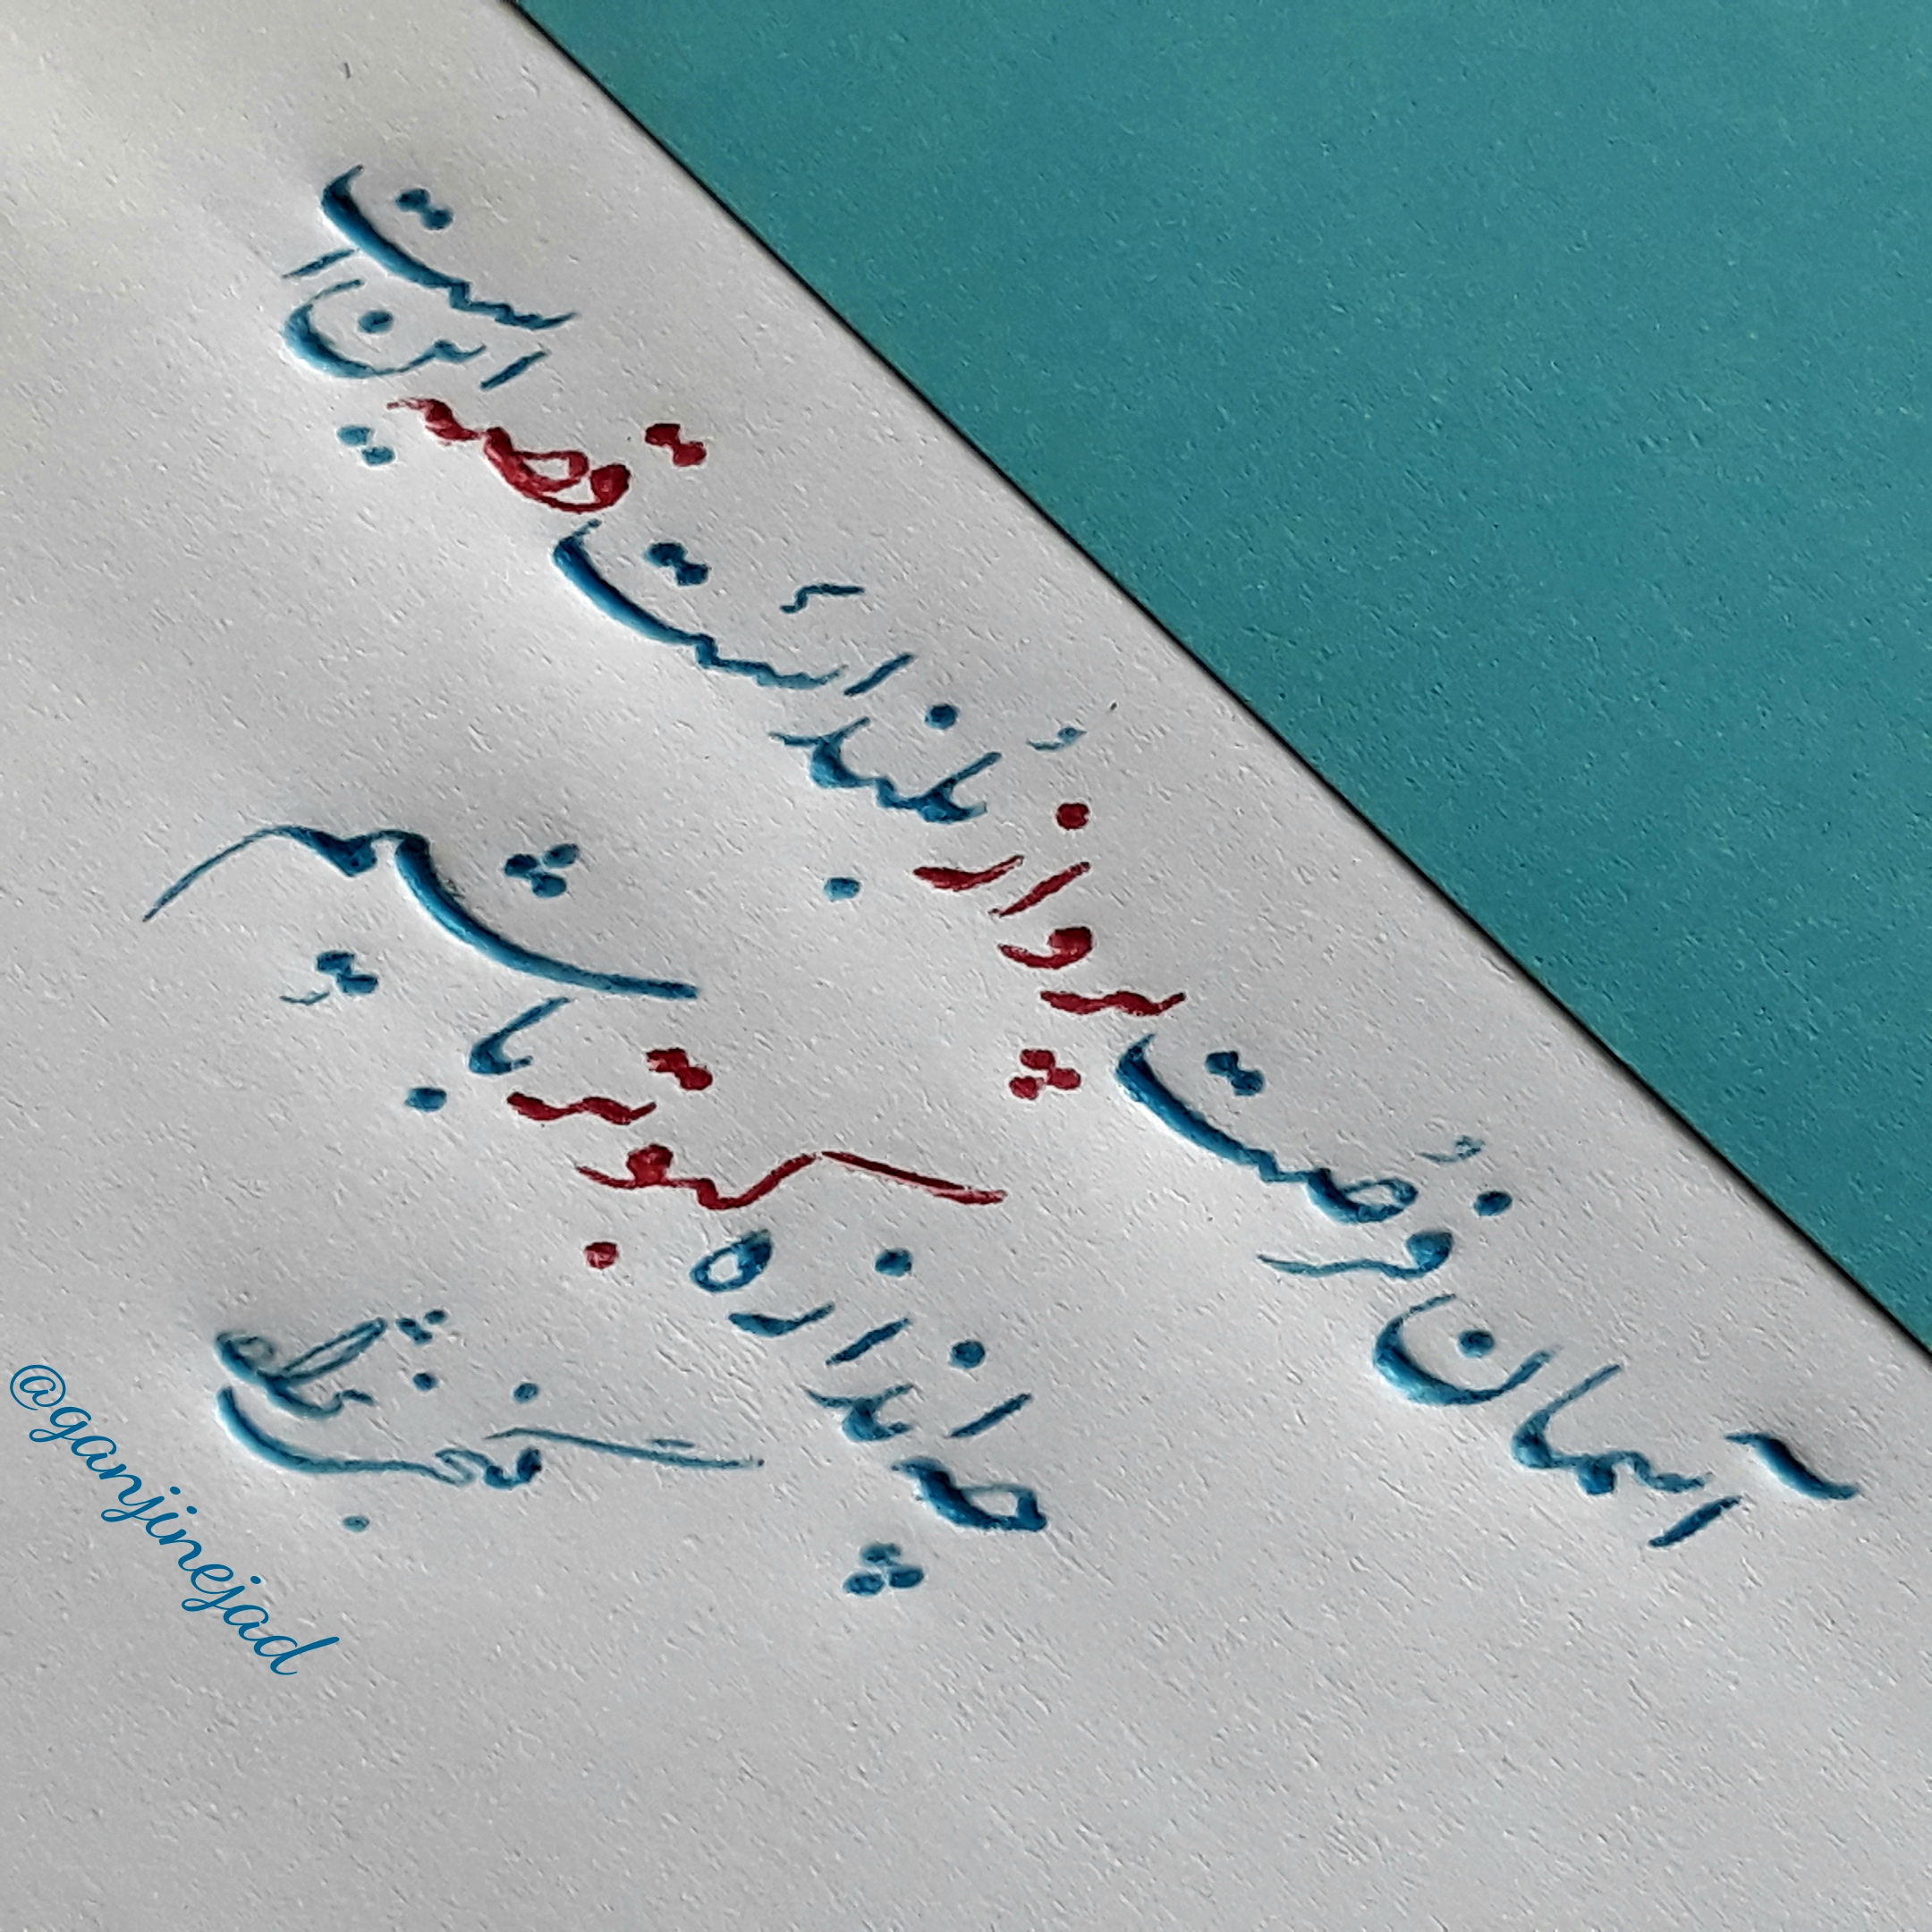 آسمان فرصت پرواز بلند است قصه این است
چه اندازه کبوتر باشیم
@ganjinejad